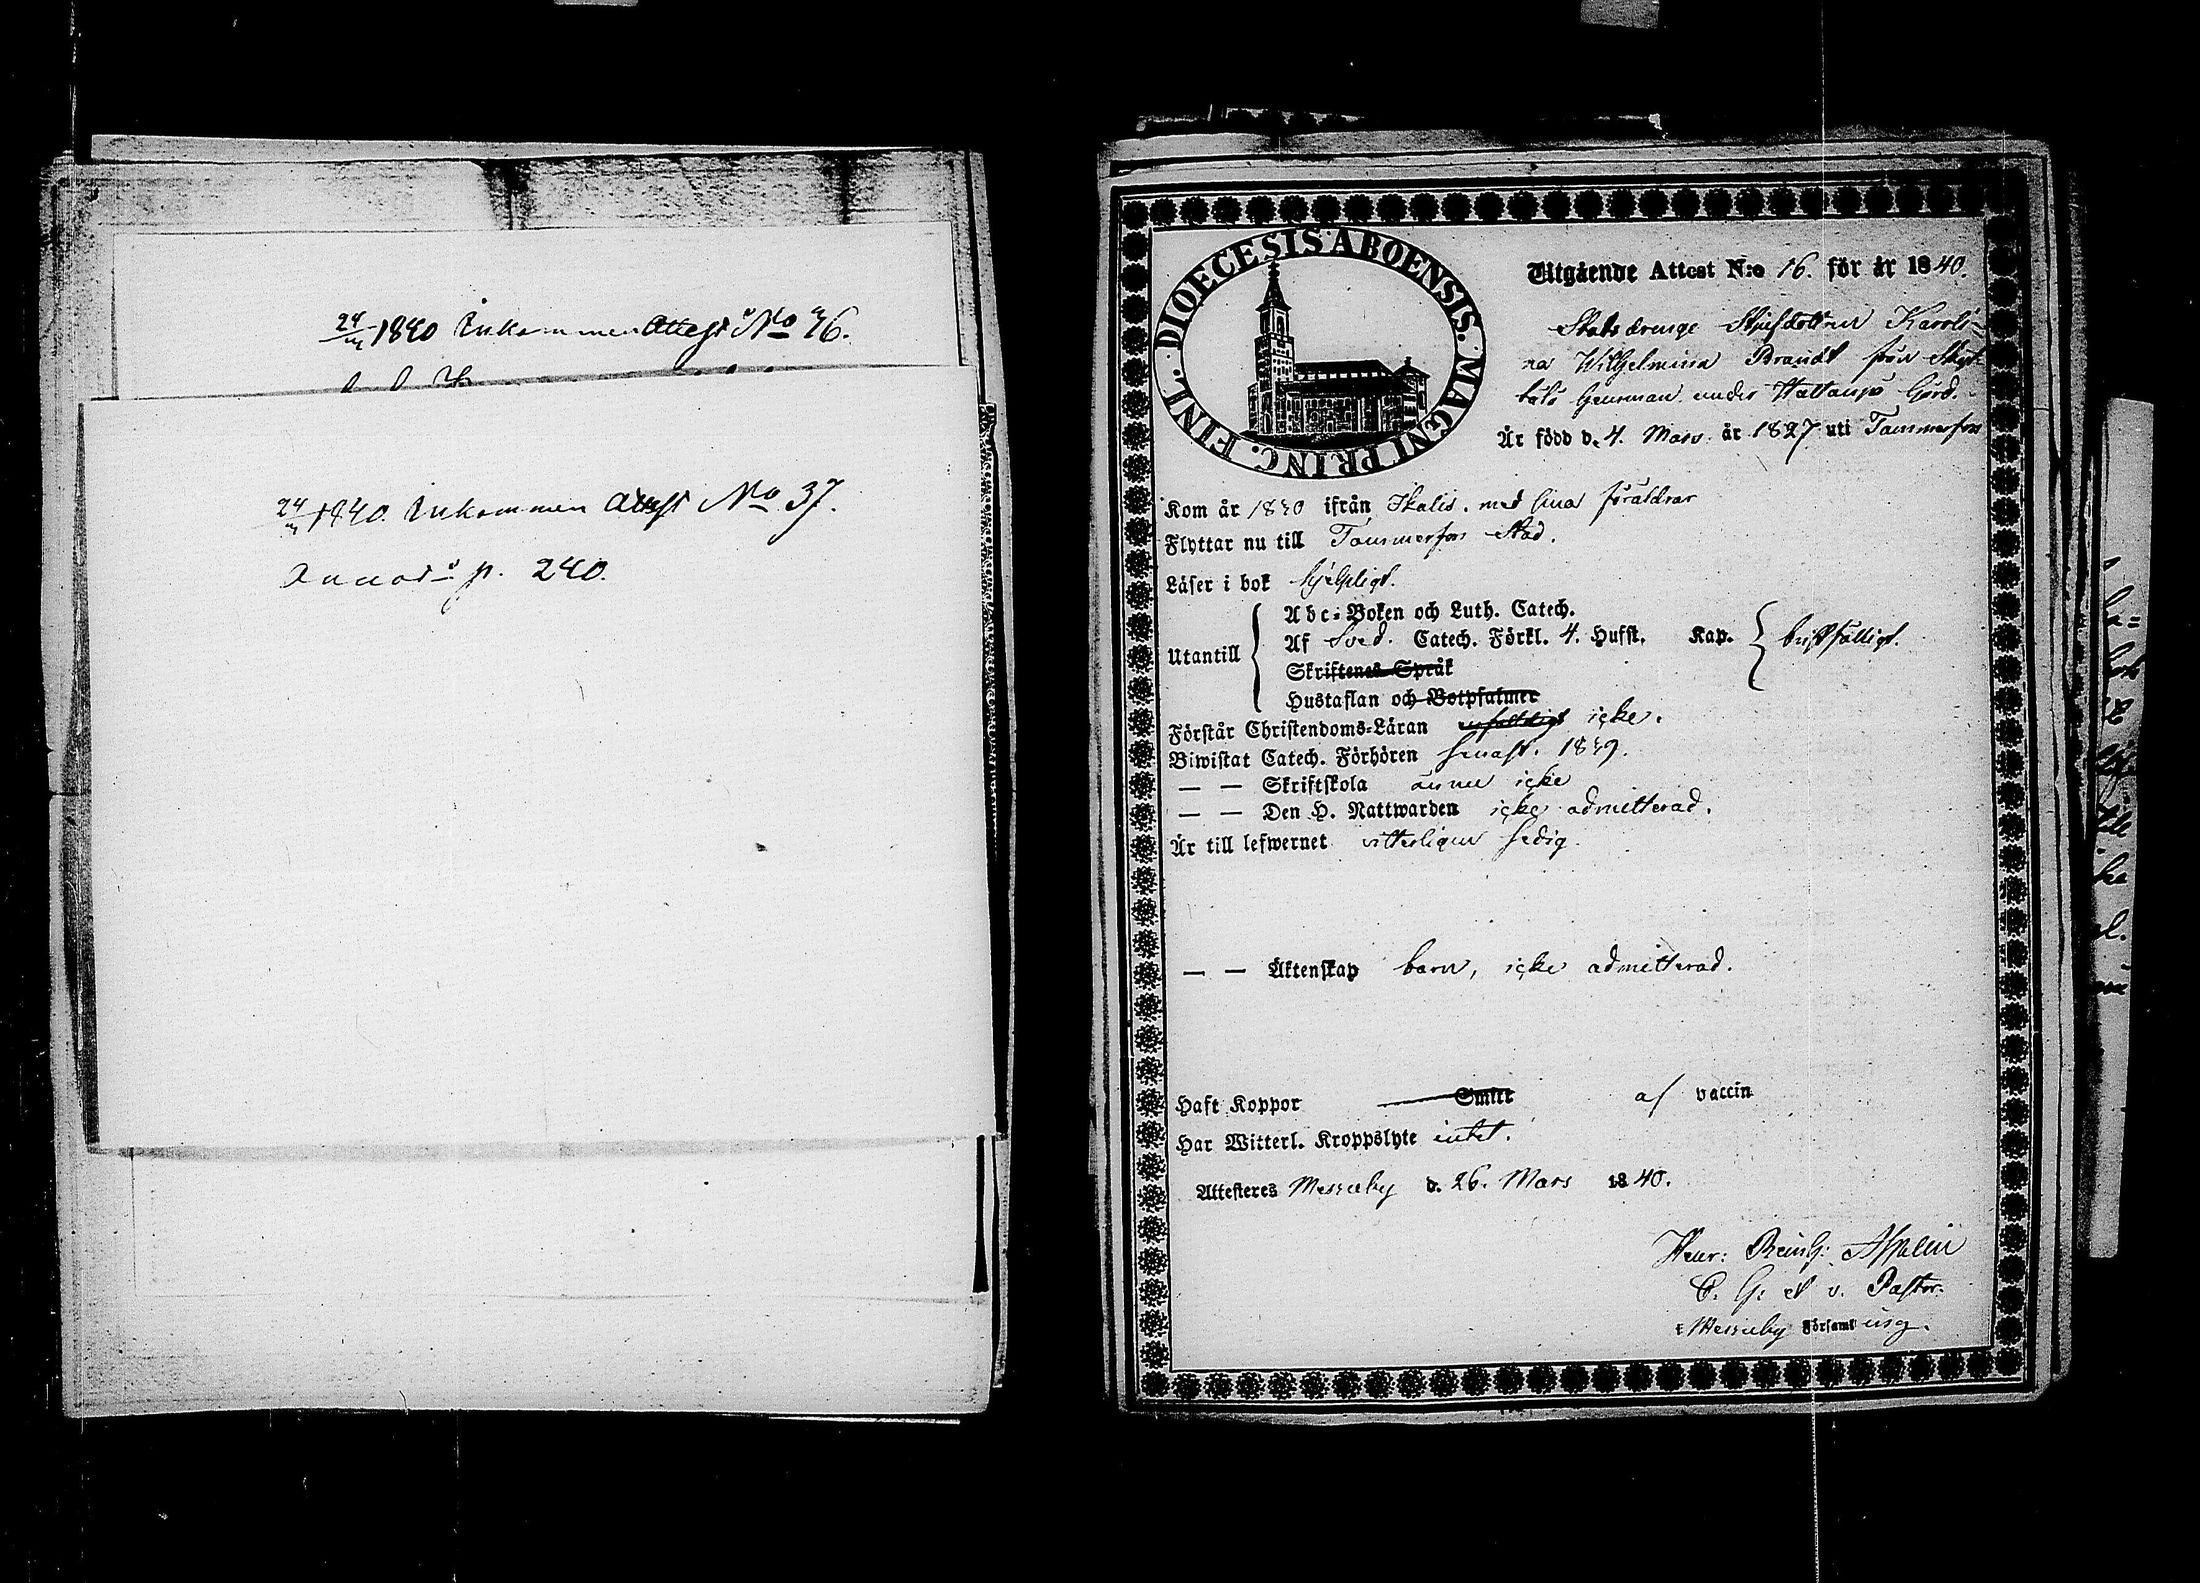 24/m 1840 Inkommen Attest No 36.
24/m 1840. Inkommen Attest No 37.
Annot: p. 240.
DIOECESIS ABOENSIS. MAGNI PRINC. FINL.
Utgående Attest N:o 16. för år 1840.
Statsdrenge Styfdottren Karoli=
na Wilhelmina Brandt från
under Hattanpä Gård.
Är född d. 4. Mars. år 1827 uti Tammerfors
Kom år 1830 ifrån Ikalis. med sina föräldrar
Flyttar nu till Tammerfors Stad.
Läser i bok hjelpligt.
Abc-Boken och Luth. Catech.
Utantill Af Sved. Catech. Förkl. 4. Hufst. Kap. bristfälligt.
Skriftenes Språk
Hustaflan och Botpsalmer
Förstår Christendoms-Läran icke.
Biwistat Catech. Förhören senast. 1839.
— — Skriftskola ännu icke
— — Den H. Nattwarden icke admitterad.
Är till lefwernet vitterligen sedig.
— — Äktenskap barn, icke admitterad.
Haft Koppor Smitt af vaccin
Har Witterl. Kroppslyte intet.
Attesteres Messuby d. 26. Mars 1840.
Henr: Reinh: Aspelin
C. G. et v. Pastor.
i Messuby Församling.